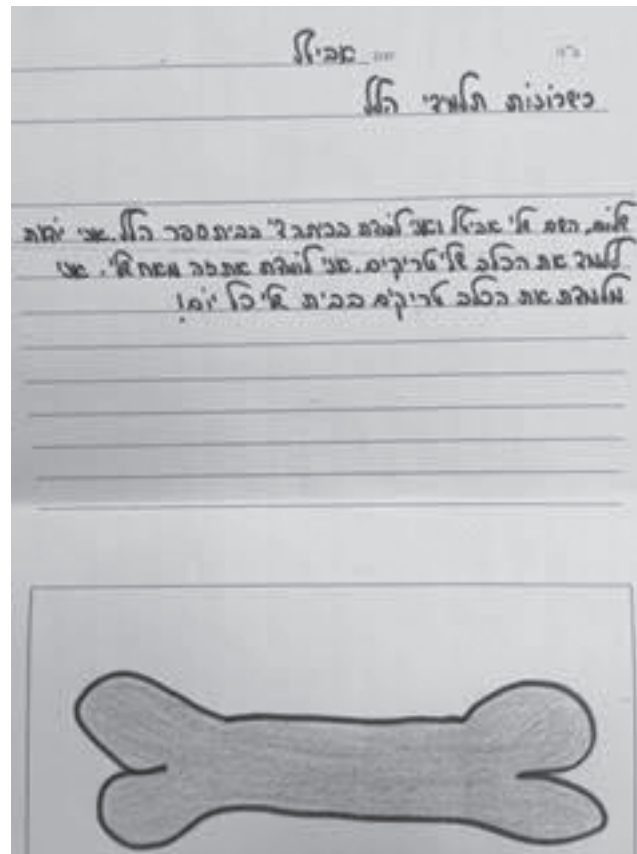 ב"ה
אביטל
כישרונות תלמידי הלל
שלום, השם שלי אביטל ואני לומדת בכיתה ד' בבית ספר הלל. אני יודעת
ללמד את הכלב שלי טריקים. אני לומדת את זה מאח שלי. אני
מלמדת את הכלב טריקים בבית שלי כל יום!